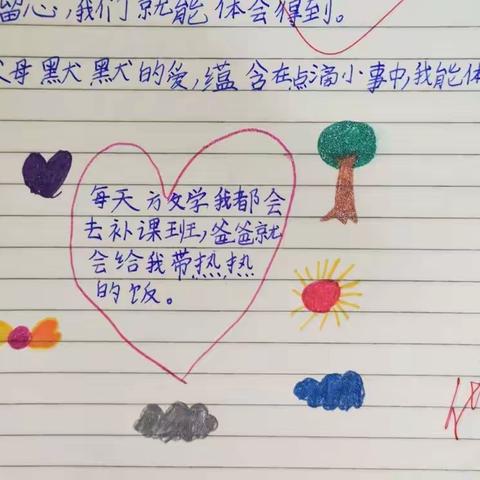 留心，我们就能体会得到。
父母黑犬黑犬的爱，蕴含在点滴小事中，我能体
每天方攵学我都会
去补课班，爸爸就
会给我带热热
的饭。